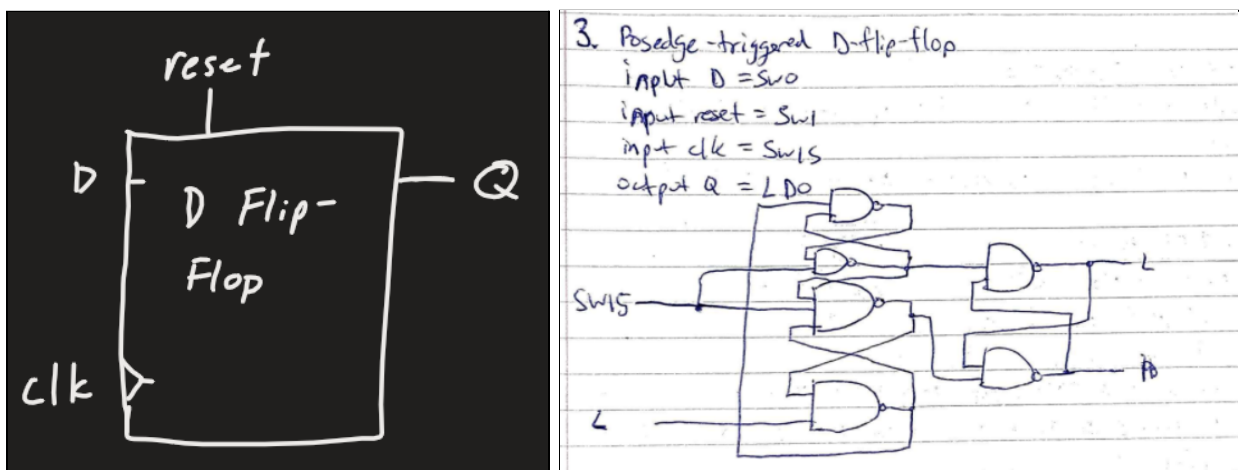 reset
D
D Flip-
Flop
Q
clk
3. Posedge-triggered D-flip-flop
input D = SW0
input reset = SW1
input clk = SW15
output Q = LD0
SW15
L
L